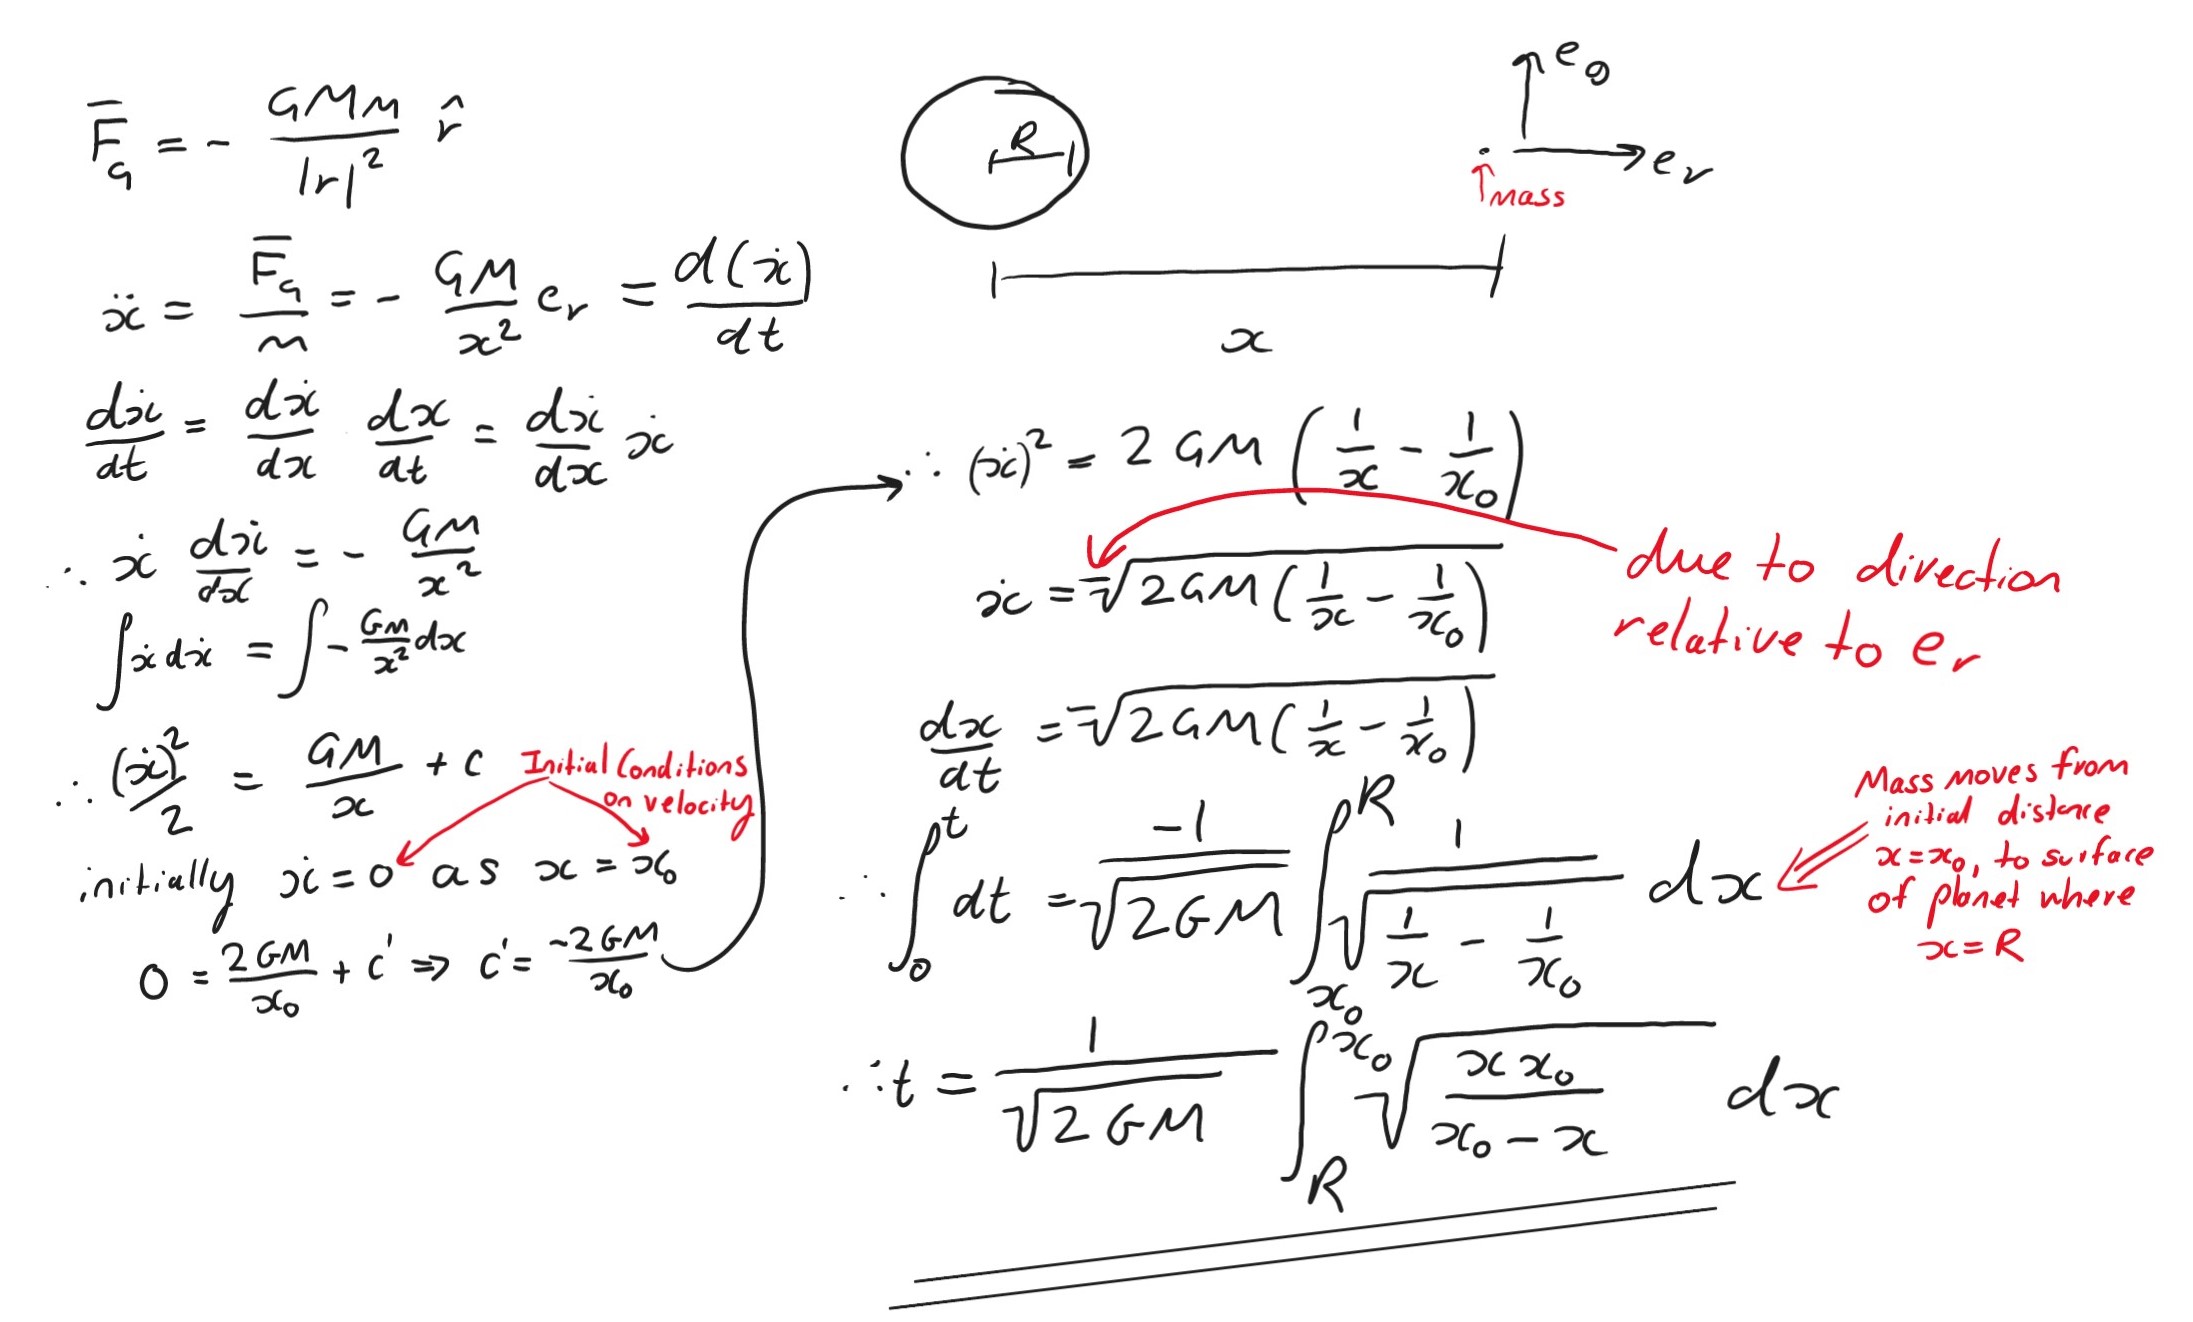 F̅_G = - GMm / |r|² r̂
ẍ = F̅_G / m = - GM / x² e_r = d(ẋ) / dt
dẋ/dt = dẋ/dx dx/dt = dẋ/dx ẋ
∴ ẋ dẋ/dx = - GM / x²
∫ ẋ dẋ = ∫ - GM/x² dx
∴ (ẋ)²/2 = GM/x + c
Initial Conditions
on velocity
initially ẋ = 0 as x = x₀
0 = 2GM/x₀ + c' ⇒ c' = -2GM/x₀
R
e_θ
e_r
mass
x
∴ (ẋ)² = 2GM (1/x - 1/x₀)
ẋ = -√(2GM(1/x - 1/x₀))
due to direction
relative to e_r
dx/dt = -√(2GM(1/x - 1/x₀))
∴ ∫₀^t dt = -1/√(2GM) ∫_{x₀}^R 1/√(1/x - 1/x₀) dx
Mass moves from
initial distance
x = x₀, to surface
of planet where
x = R
∴ t = 1/√(2GM) ∫_R^{x₀} √(x x₀ / (x₀ - x)) dx